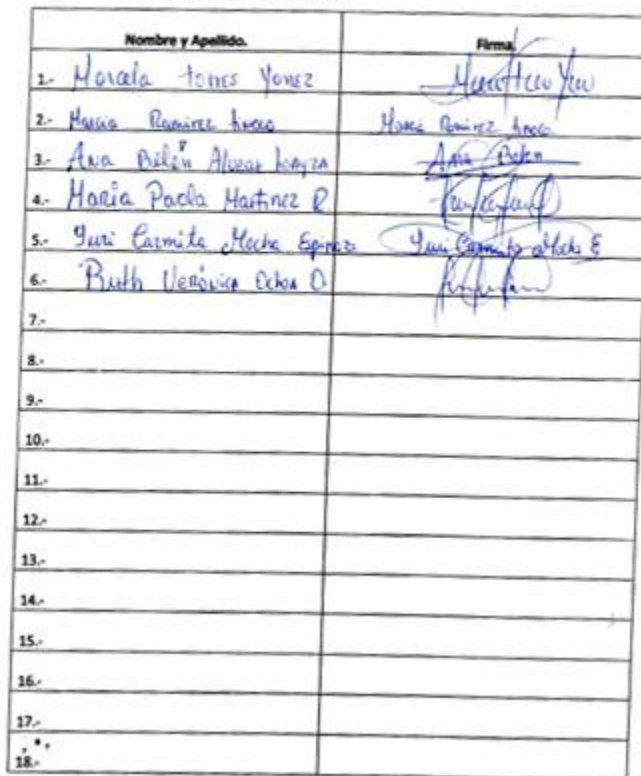 Nombre y Apellido. Firma.
1.- Marcela torres Yanez
2.- Maria Ramirez Maria Ramirez
3.- Ana Belén Ana Belen
4.- Maria Paola Martinez R
5.- Yuri Carmita Mocha Espinoza Yuri Carmita Mocha E
6.- Ruth Verónica Ochoa O
7.-
8.-
9.-
10.-
11.-
12.-
13.-
14.-
15.-
16.-
17.-
18.-